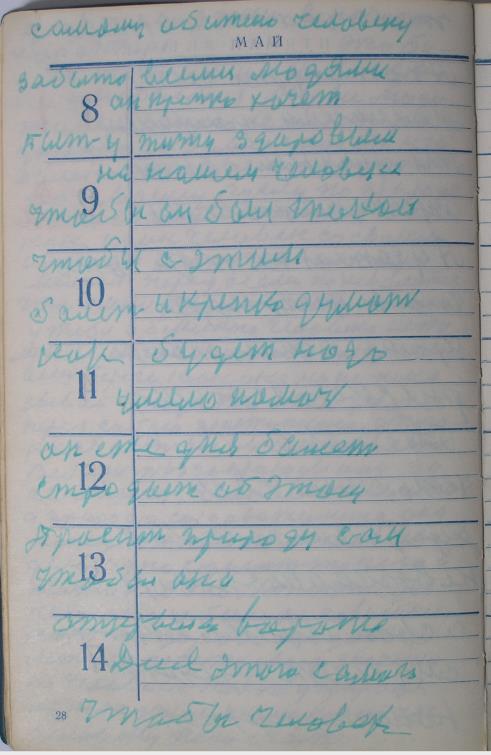 самому обижено человеку
МАЙ
забыто всеми людями
8 он крепко хочет
быть у жизни здоровьем
на нашем человеке
9
чтобы он был такой
чтобы с этим
10
болет и крепко думат
как будет надо
11
умело помоч
он еже дня болеет
12
страдает об этом
просит природу сам
13
чтобы она
открыла ворота
14 Для этого самого
28 чтобы человек